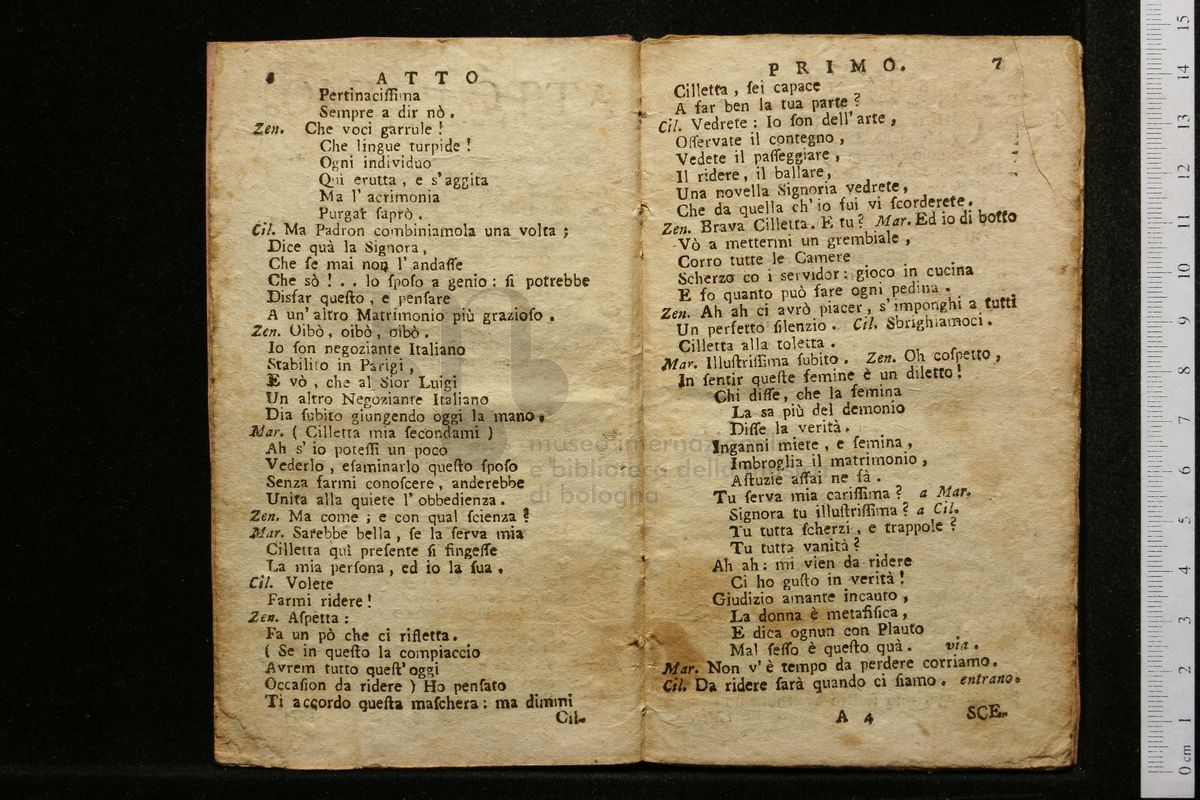 6 ATTO
Pertinaciſſima
Sempre a dir nò.
Zen. Che voci garrule!
Che lingue turpide!
Ogni individuo
Quì erutta, e s'aggita
Ma l'acrimonia
Purgar ſaprò.
Cil. Ma Padron combiniamola una volta;
Dice quà la Signora,
Che ſe mai non l'andaſſe
Che sò!.. lo ſpoſo a genio: ſi potrebbe
Disfar queſto, e penſare
A un'altro Matrimonio più grazioſo.
Zen. Oibò, oibò, oibò.
Io ſon negoziante Italiano
Stabilito in Parigi,
E vò, che al Sior Luigi
Un altro Negoziante Italiano
Dia ſubito giungendo oggi la mano.
Mar. (Cilletta mia ſecondami)
Ah s'io poteſſi un poco
Vederlo, eſaminarlo queſto ſpoſo
Senza farmi conoſcere, anderebbe
Unita alla quiete l'obbedienza.
Zen. Ma come; e con qual ſcienza?
Mar. Sarebbe bella, ſe la ſerva mia
Cilletta quì preſente ſi fingeſſe
La mia perſona, ed io la ſua.
Cil. Volete
Farmi ridere!
Zen. Aſpetta:
Fa un pò che ci rifletta.
(Se in queſto la compiaccio
Avrem tutto queſt'oggi
Occaſion da ridere) Ho penſato
Ti accordo queſta maſchera: ma dimmi
Cil.
PRIMO. 7
Cilletta, ſei capace
A far ben la tua parte?
Cil. Vedrete: Io ſon dell'arte,
Oſſervate il contegno,
Vedete il paſſeggiare,
Il ridere, il ballare,
Una novella Signoria vedrete,
Che da quella ch'io fui vi ſcorderete.
Zen. Brava Cilletta. E tu? Mar. Ed io di botto
Vò a mettermi un grembiale,
Corro tutte le Camere
Scherzo co i ſervidor: gioco in cucina
E fo quanto può fare ogni pedina.
Zen. Ah ah ci avrò piacer, s'imponghi a tutti
Un perfetto ſilenzio. Cil. Sbrighiamoci.
Cilletta alla toletta.
Mar. Illuſtriſſima ſubito. Zen. Oh coſpetto,
In ſentir queſte femine è un diletto!
Chi diſſe, che la femina
La sa più del demonio
Diſſe la verità.
Inganni miete, e ſemina,
Imbroglia il matrimonio,
Aſtuzie aſſai ne fà.
Tu ſerva mia cariſſima? a Mar.
Signora tu illuſtriſſima? a Cil.
Tu tutta ſcherzi, e trappole?
Tu tutta vanità?
Ah ah: mi vien da ridere
Ci ho guſto in verità!
Giudizio amante incauto,
La donna è metafiſica,
E dica ognun con Plauto
Mal ſeſſo è queſto quà. via.
Mar. Non v'è tempo da perdere corriamo.
Cil. Da ridere ſarà quando ci ſiamo. entrano.
A 4 SCE-
museo internazionale
e biblioteca della musica
di bologna
0 cm 1 2 3 4 5 6 7 8 9 10 11 12 13 14 15